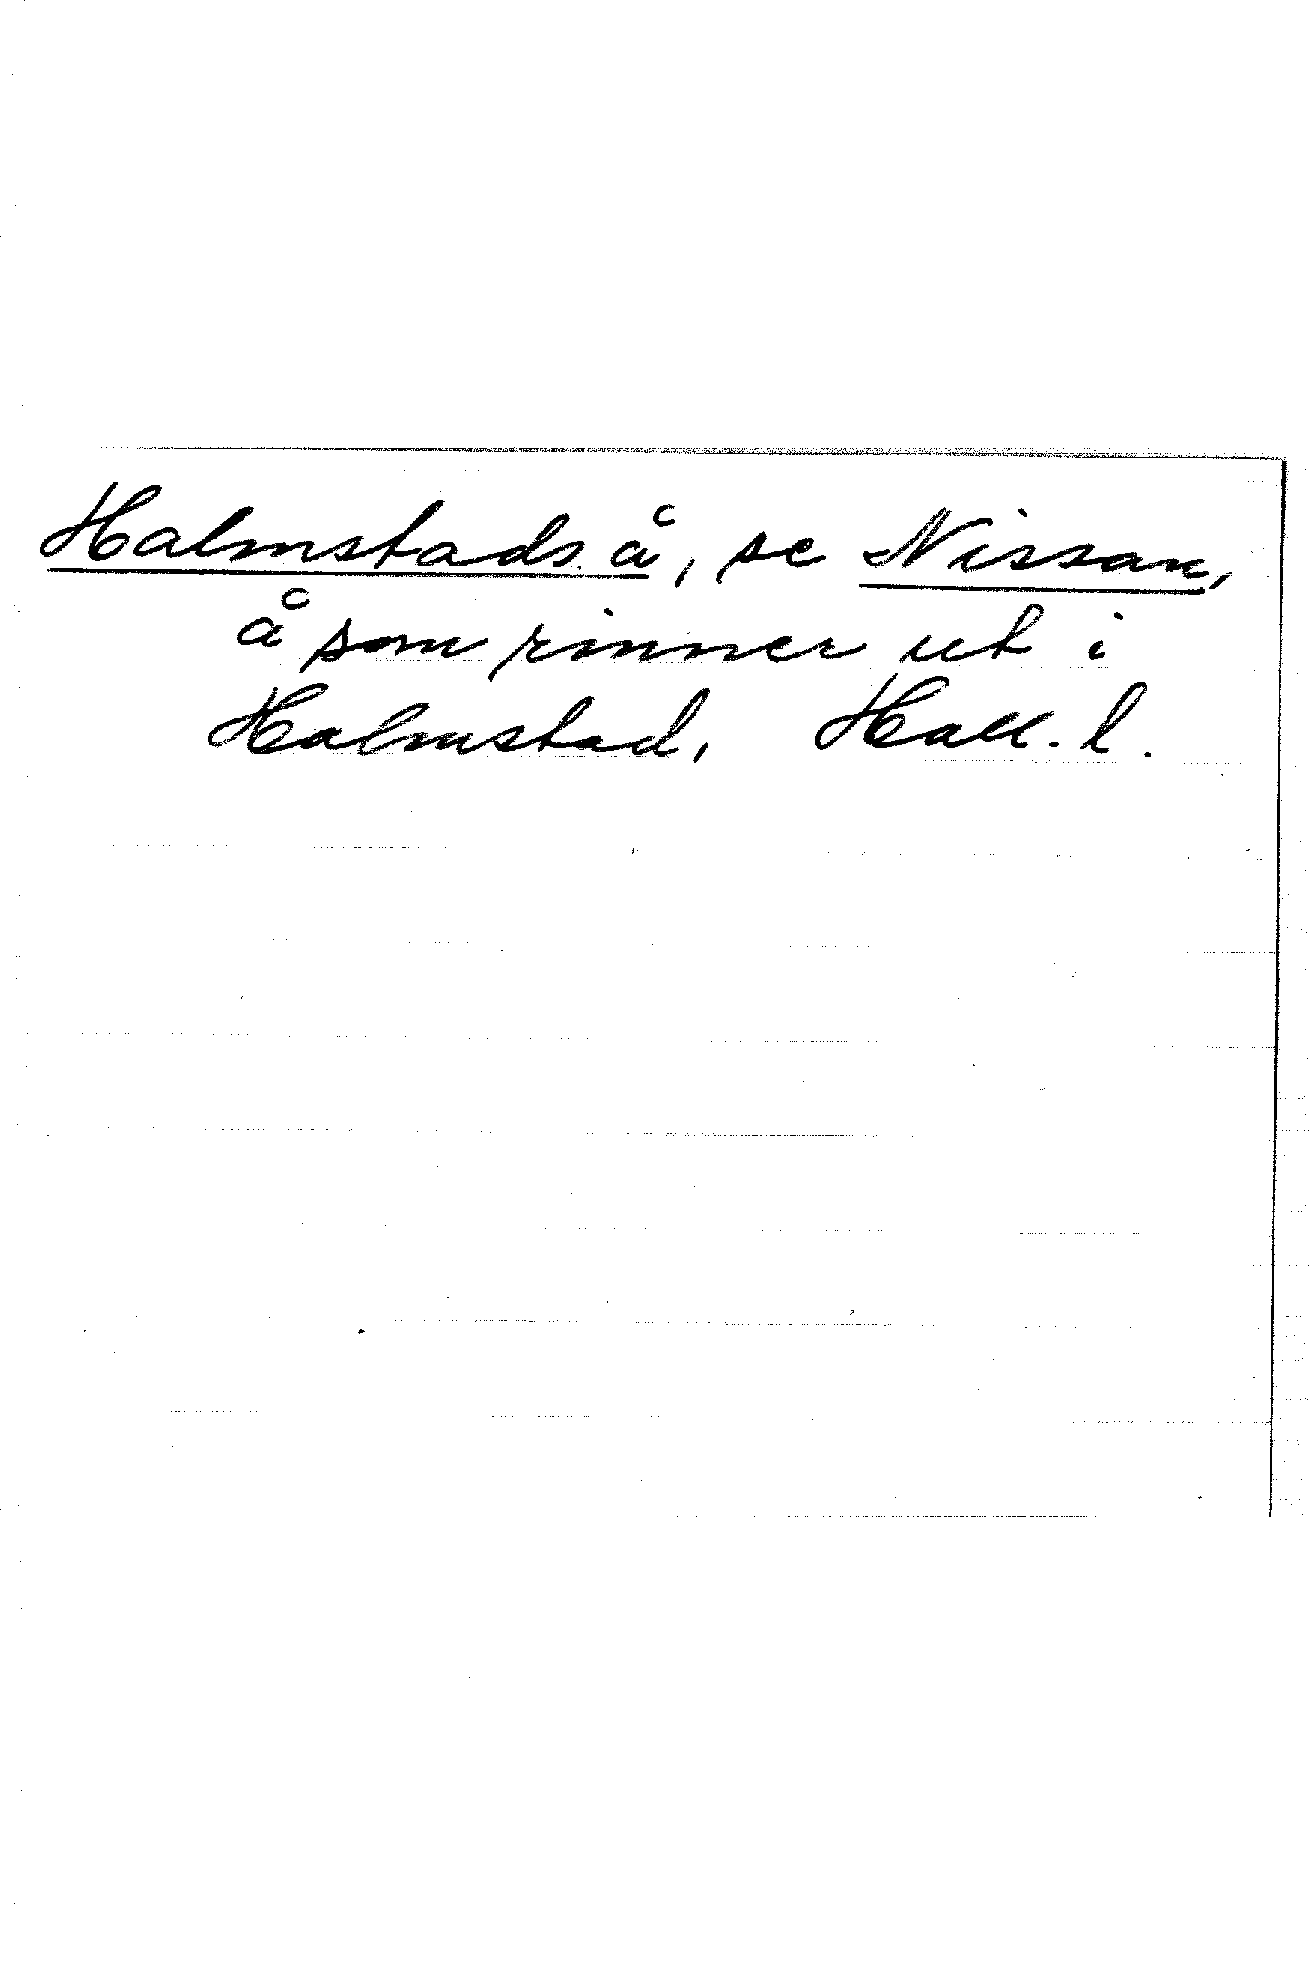 Halmstads å, se Nissan,
å som rinner ut i
Halmstad, Hall. l.